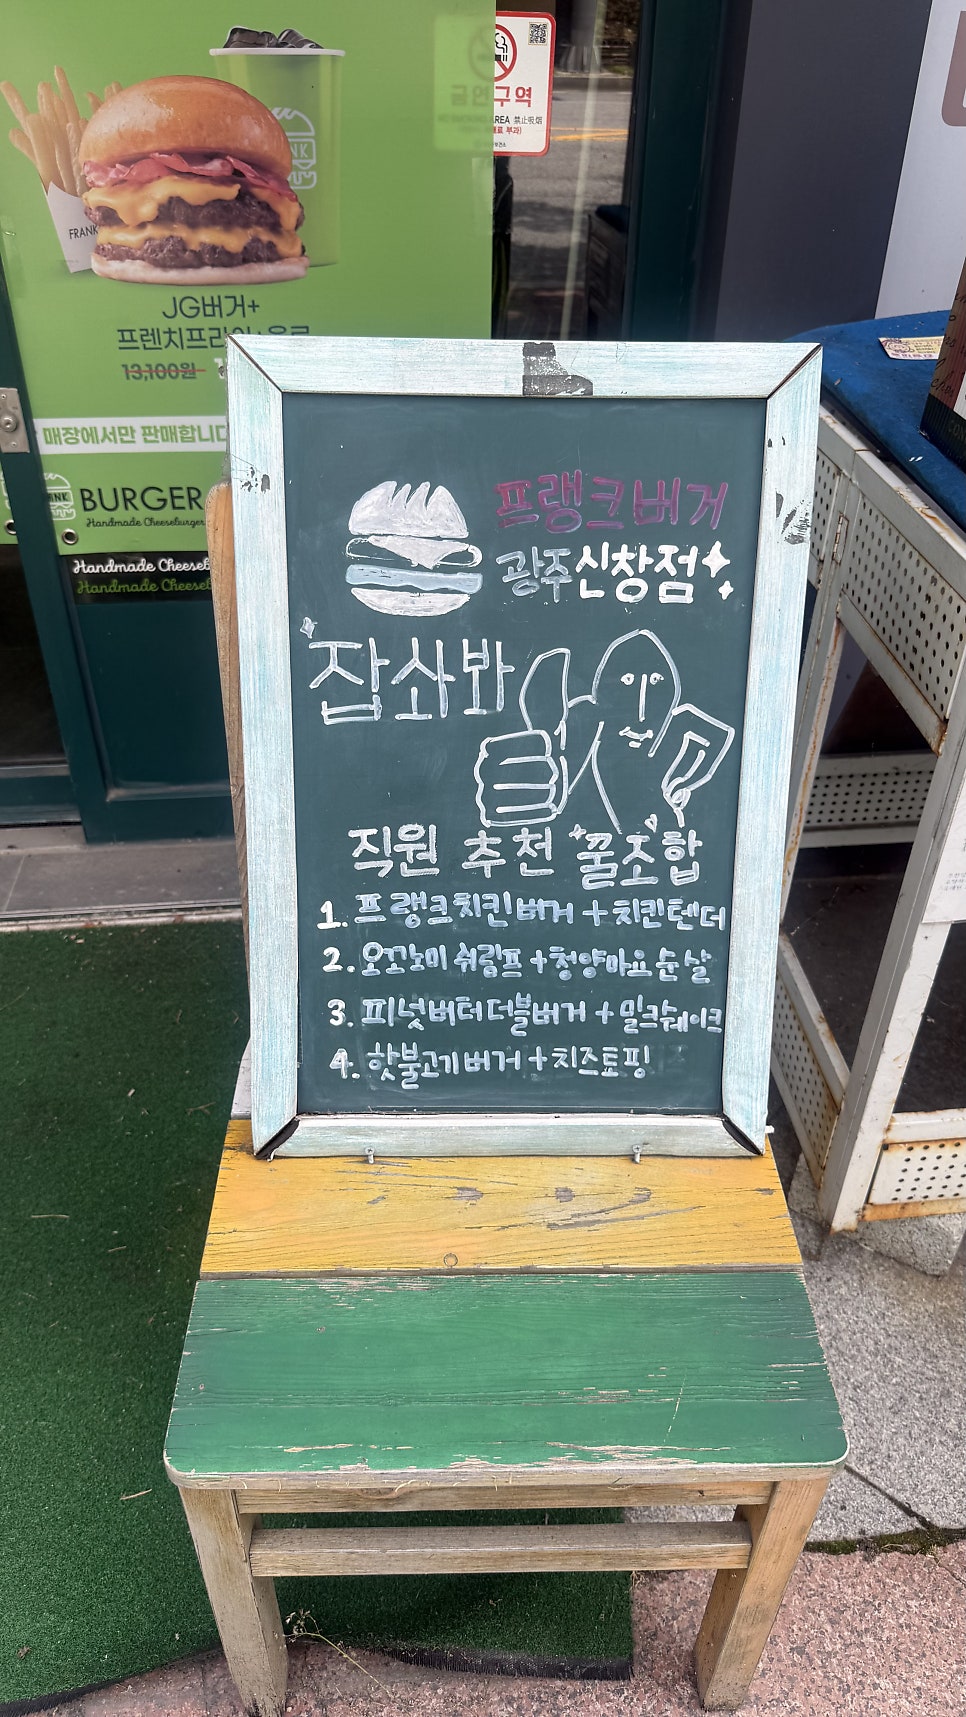 금연구역
AREA 禁止吸烟
FRANK
JG버거+
프렌치프라이+음료
13,100원
매장에서만 판매합니다
BURGER
Handmade Cheeseburger
Handmade Cheese
Handmade Cheese
프랭크버거
광주신창점
잡솨봐
직원 추천 꿀조합
1. 프랭크치킨버거 + 치킨텐더
2. 오꼬노미 쉬림프 + 청양마요순살
3. 피넛버터더블버거 + 밀크쉐이크
4. 핫불고기버거 + 치즈토핑